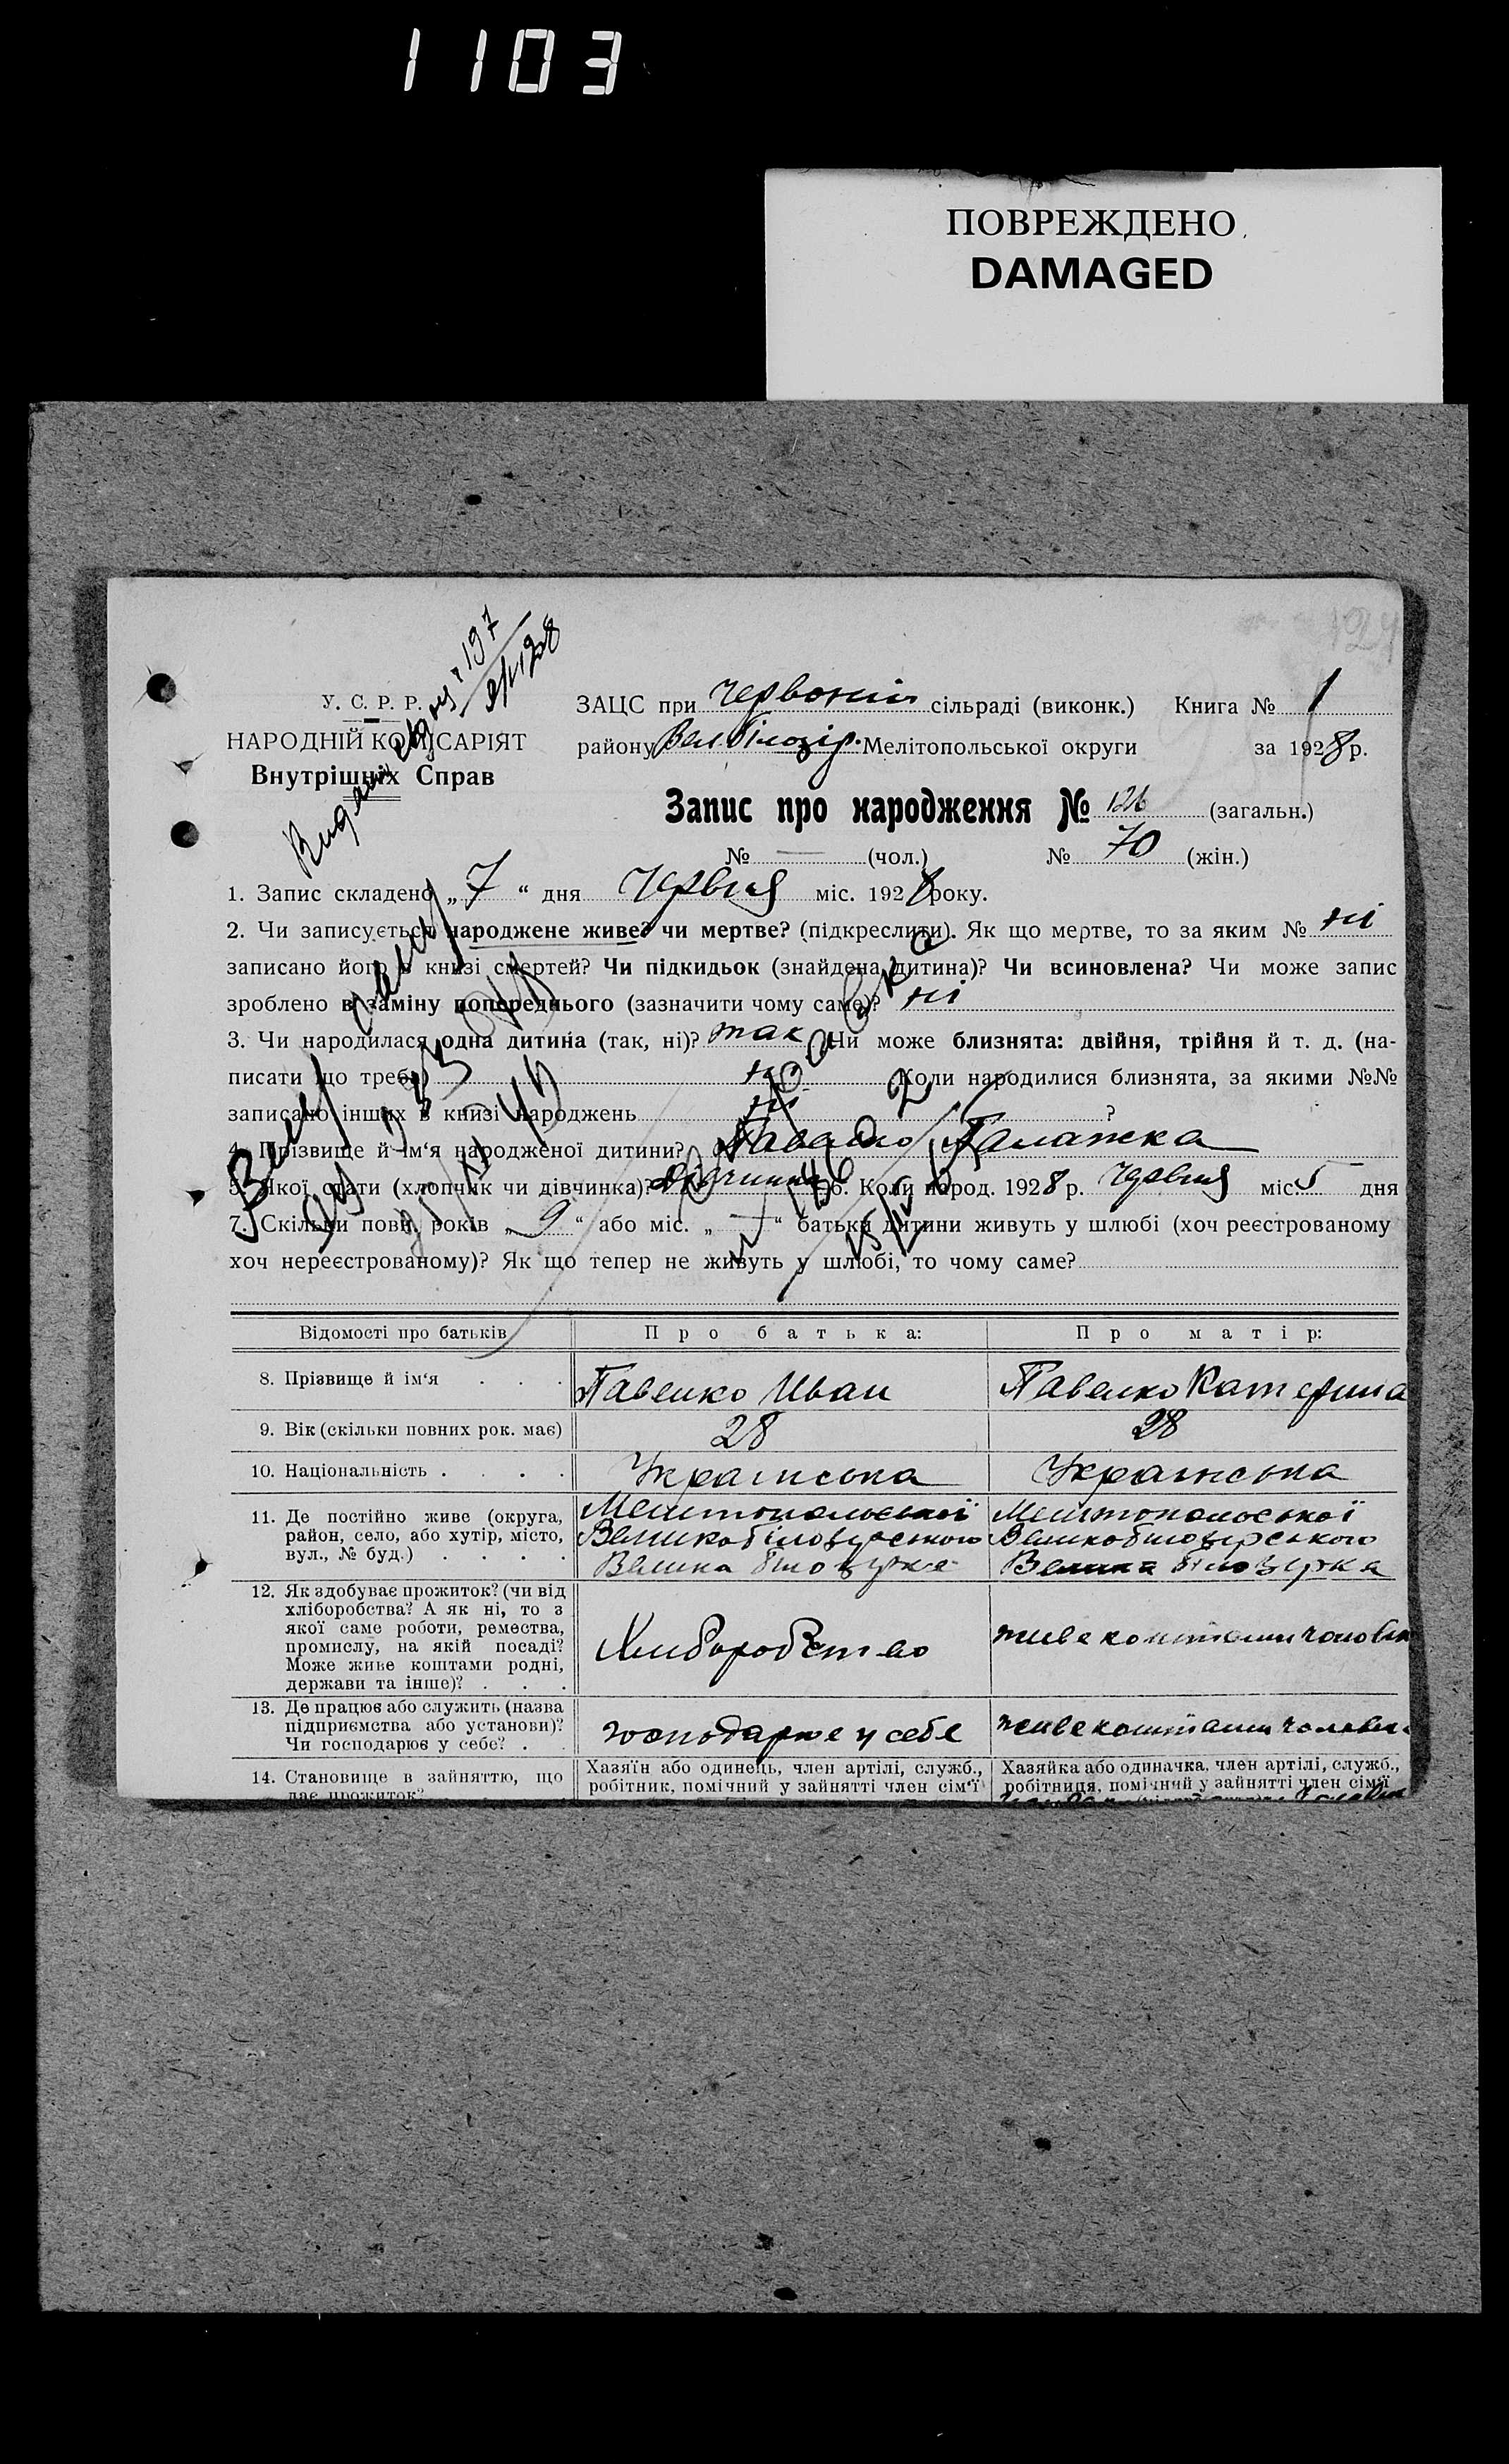 1103
ПОВРЕЖДЕНО
DAMAGED
У. С. Р. Р.
НАРОДНІЙ КОМІСАРІЯТ
Внутрішніх Справ
197
ЗАЦС при Червоній сільраді (виконк.) Книга № 1
району Вел. Білозір. Мелітопольської округи за 1928 р.
Запис про народження № 126 (загальн.)
№ — (чол.) № 70 (жін.)
1. Запис складено „7“ дня Червня міс. 1928 року.
2. Чи записується народжене живе? чи мертве? (підкреслити). Як що мертве, то за яким № ні
записано його в книзі смертей? Чи підкидьок (знайдена дитина)? Чи всиновлена? Чи може запис
зроблено в заміну попереднього (зазначити чому саме)? ні
3. Чи народилася одна дитина (так, ні)? так Чи може близнята: двійня, трійня й т. д. (на-
писати що треба) ні Коли народилися близнята, за якими №№
записано інших в книзі народжень ні ?
4. Прізвище й ім‘я народженої дитини? Павенко Палажка
5. Якої стати (хлопчик чи дівчинка)? Дівчинка 6. Коли народ. 1928 р. Червня міс. 5 дня
7. Скільки повн. років „9“ або міс. „—“ батьки дитини живуть у шлюбі (хоч реєстрованому
хоч нереєстрованому)? Як що тепер не живуть у шлюбі, то чому саме?
Відомості про батьків Про батька: Про матір:
8. Прізвище й ім‘я . . . Павенко Иван Павенко Катерина
9. Вік (скільки повних рок. має) 28 28
10. Національність . . . . Українська Українська
11. Де постійно живе (округа, Мелітопольської Мелітопольської
район, село, або хутір, місто, Великобілозерського Великобілозерського
вул., № буд.) . . . . Велика Білозерка Велика Білозерка
12. Як здобуває прожиток? (чи від
хліборобства? А як ні, то з
якої саме роботи, ремества,
промислу, на якій посаді?
Може живе коштами родні,
держави та інше)? . . .
Хліборобство живе коштами чоловік
13. Де працює або служить (назва
підприємства або установи)?
Чи господарює у себе? . .
господарює у себе живе коштами чоловік
14. Становище в зайняттю, що
дає прожиток?
Хазяїн або одинець, член артілі, служб.,
робітник, помічний у зайнятті член сім‘ї
Хазяйка або одиначка, член артілі, служб.,
робітниця, помічний у зайнятті член сім‘ї